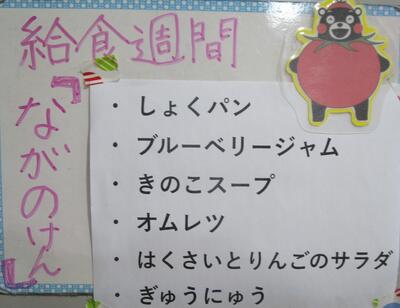 給食週間
『ながのけん』
・しょくパン
・ブルーベリージャム
・きのこスープ
・オムレツ
・はくさいとりんごのサラダ
・ぎゅうにゅう